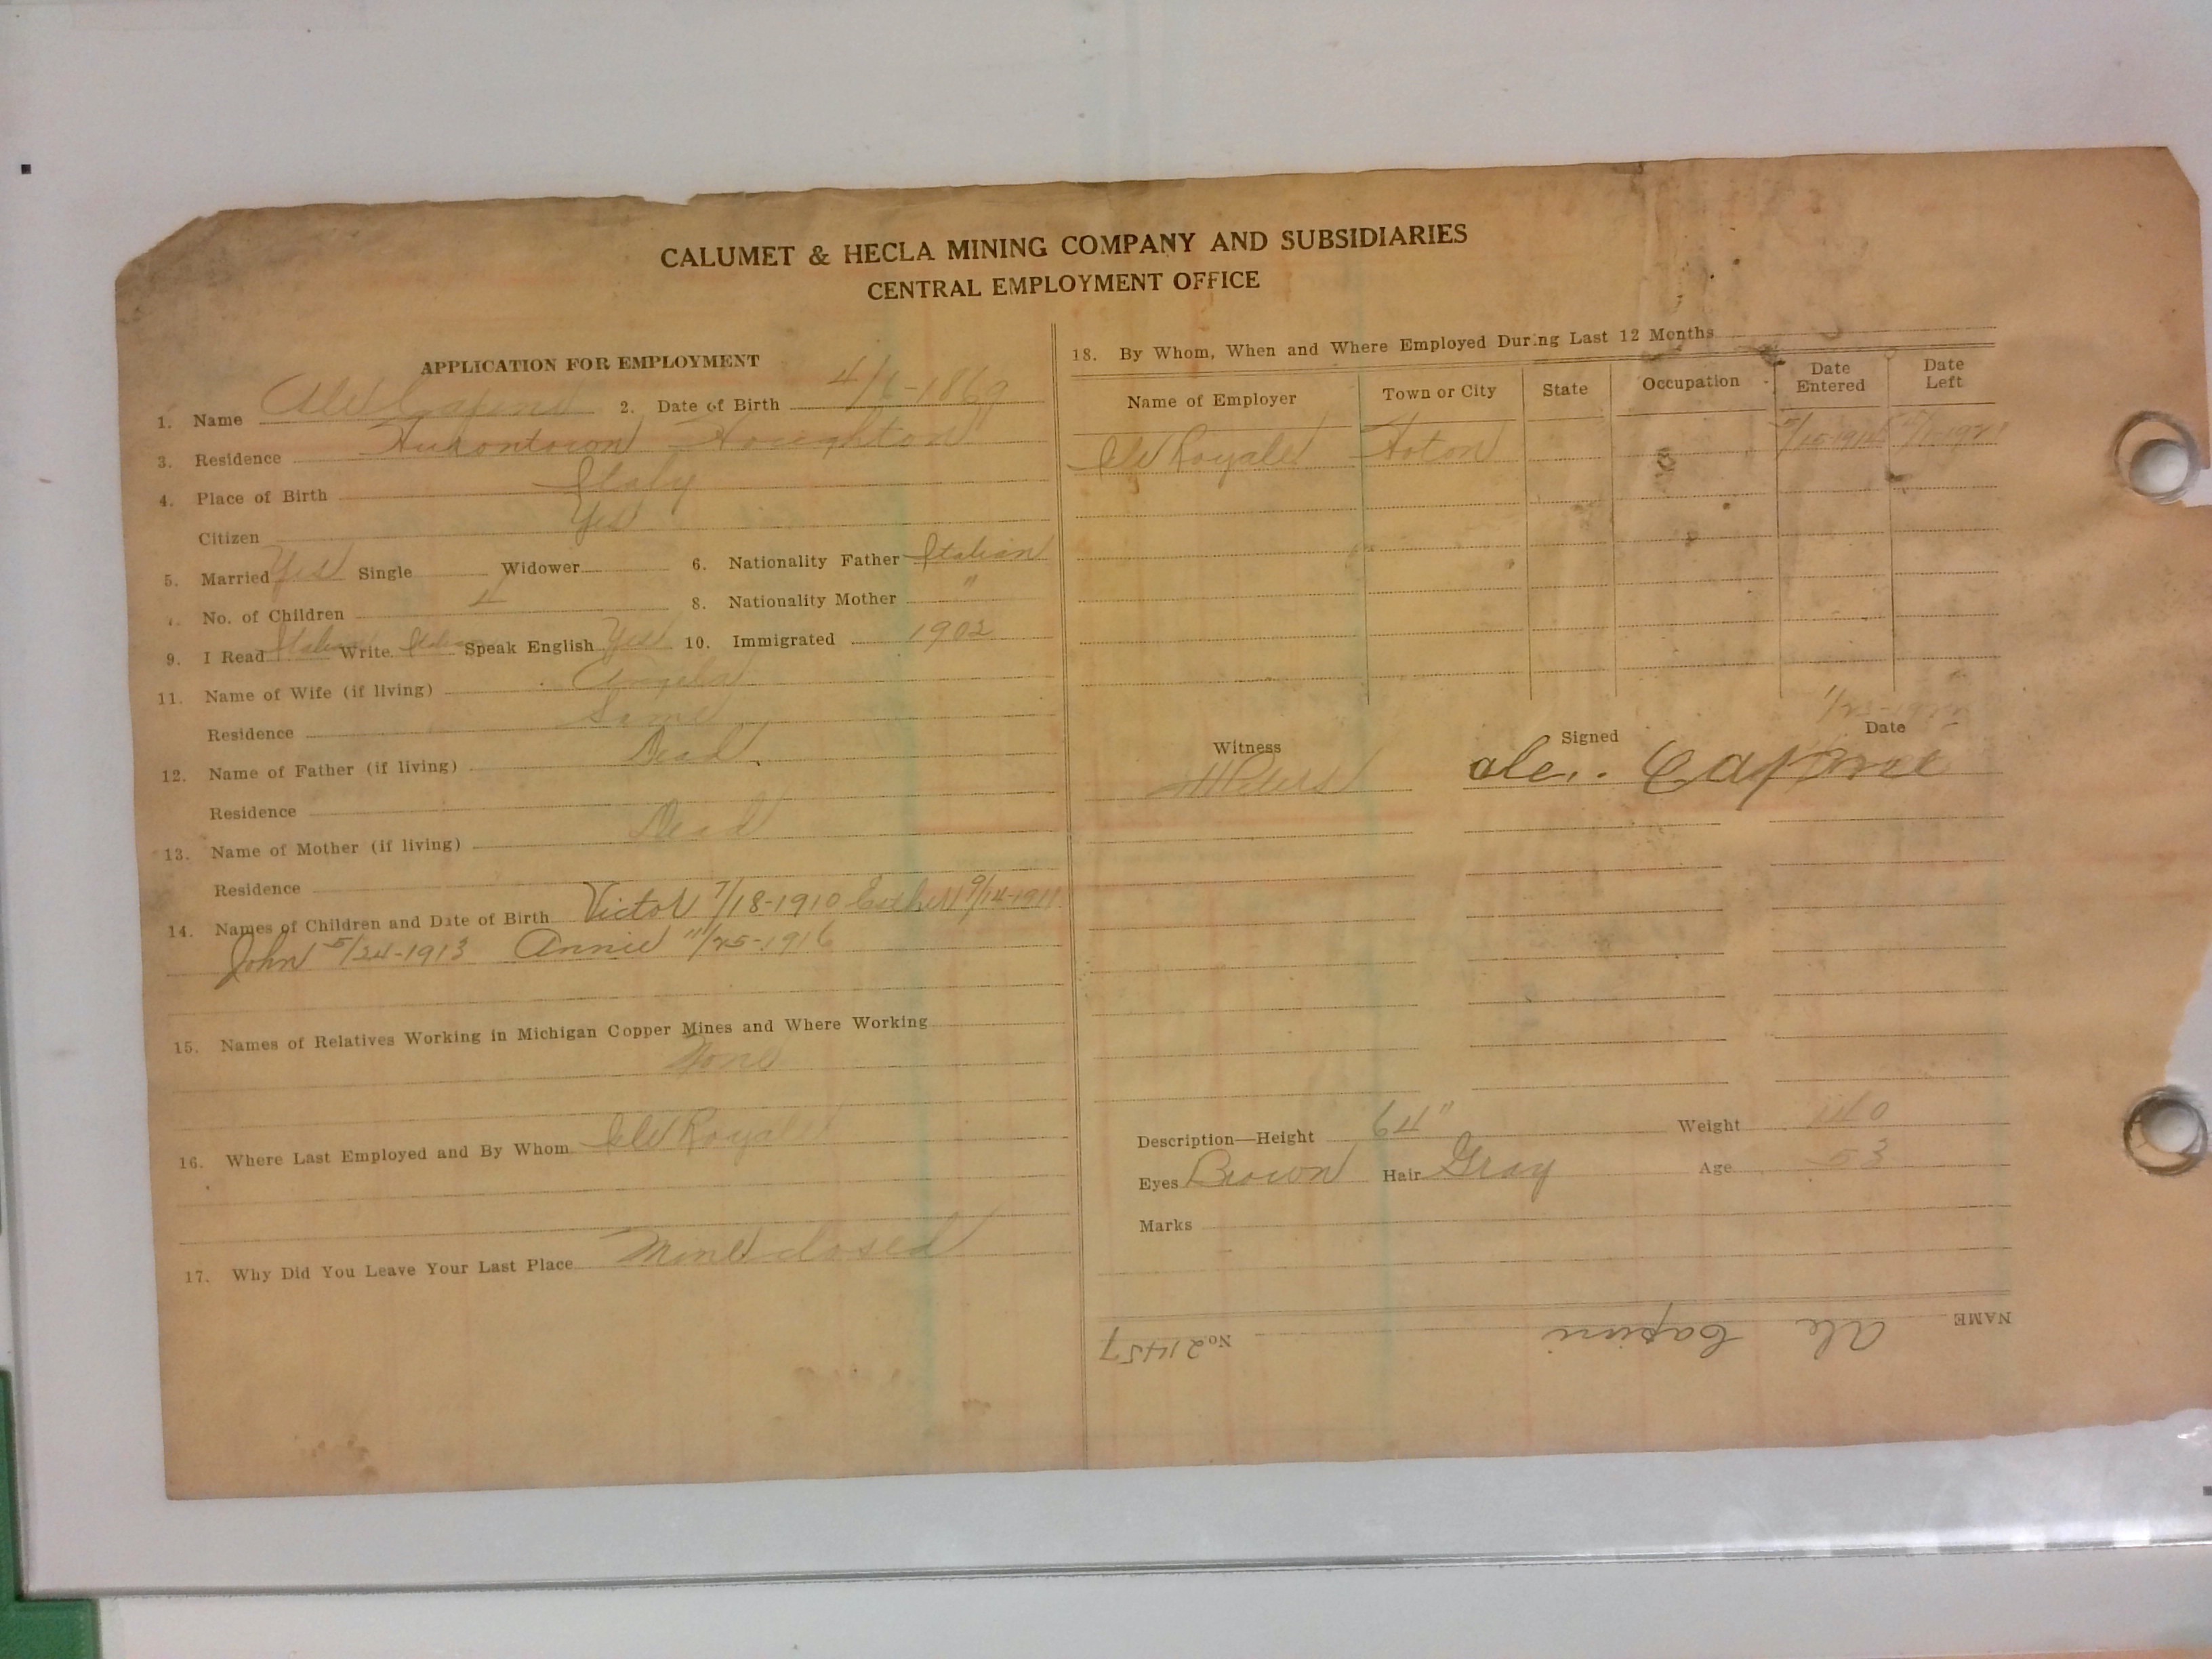 CALUMET & HECLA MINING COMPANY AND SUBSIDIARIES
CENTRAL EMPLOYMENT OFFICE
APPLICATION FOR EMPLOYMENT
1. Name Ale 2. Date of Birth 4/6-1869
3. Residence Hurontown Houghton
4. Place of Birth Italy
Citizen Yes
5. Married Yes Single Widower 6. Nationality Father Italian
No. of Children 4 8. Nationality Mother "
9. I Read Italian Write Italian Speak English Yes 10. Immigrated 1902
11. Name of Wife (if living) Angela
Residence Same
12. Name of Father (if living) Dead
Residence
13. Name of Mother (if living) Dead
Residence
14. Names of Children and Date of Birth Victor 7/18-1910 Esther 9/14-1911
John 5/24-1913 Annie 11/25-1916
15. Names of Relatives Working in Michigan Copper Mines and Where Working
None
16. Where Last Employed and By Whom Isle Royale
17. Why Did You Leave Your Last Place Mine closed
18. By Whom, When and Where Employed During Last 12 Months
Name of Employer Town or City State Occupation Date Entered Date Left
Isle Royale Hoton
Witness Signed Date
Description—Height 64" Weight 140
Eyes Brown Hair Gray Age 53
Marks
NAME Ale No. 21457